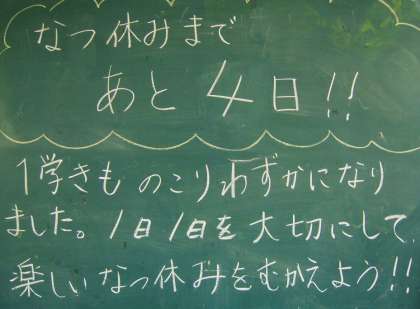 なつ休みまで
あと4日!!
1学きものこりわずかになり
ました。1日1日を大切にして
楽しいなつ休みをむかえよう!!